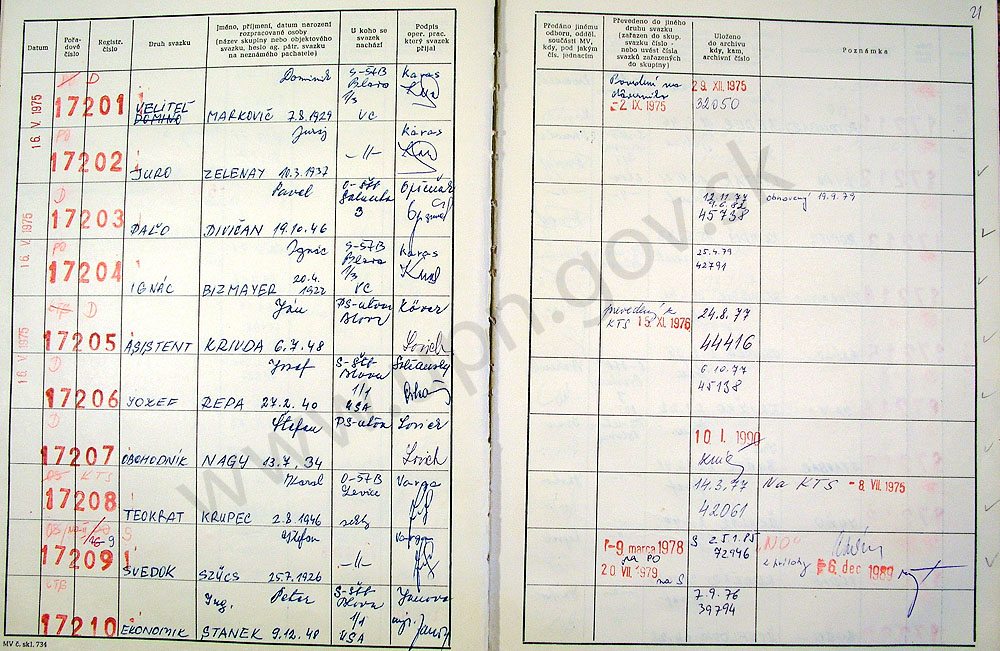 21
Datum
Pořadové číslo
Registr. číslo
Druh svazku
Jméno, příjmení, datum narození
rozpracované osoby
(název skupiny nebo objektového
svazku, heslo ag. pátr. svazku
na neznámého pachatele)
U koho se
svazek
nachází
Podpis
oper. prac.
který svazek
přijal
Předáno jinému
odboru, odděl.
součásti MV,
kdy, pod jakým
čís. jednacím
Převedeno do jiného
druhu svazku
(zařazen do skup.
svazku číslo -
nebo uvést čísla
svazků zařazených
do skupiny)
Uloženo
do archivu
kdy, kam,
archivní číslo
Poznámka
16. V. 1975
D
17201
VELITEĽ
DOMINO
Dominik
MARKOVIČ 7.8.1929
S-ŠTB
Blava
1/3
VC
Karas
-2. IX. 1975
29. XII. 1975
32050
PO
17202
JURO
Juraj
ZELENAY 10.3.1937
-11-
Karas
D
17203
PAĽO
Pavel
DIVIČAN 19.10.46
O-ŠTB
Galanta
3
12.11.77
45738
obnovený 19.9.79
16. V. 1975
PO
17204
IGNÁC
Ignác
BIZMAYER 20.4.
1922
S-ŠTB
Blava
1/3
VC
Karas
25.4.79
42791
D
17205
ASISTENT
Ján
KRIVDA 6.7.48
PS-útvar
Blava
Köver
prevedený k
KTS 15. XI. 1976
24.8.77
44416
16. V. 1975
D
17206
JOZEF
Jozef
REPA 27.2.40
S-ŠTB
Blava
1/1
USA
6.10.77
45138
D
17207
OBCHODNÍK
Štefan
NAGY 13.7.34
PS-útvar
10. I. 1990
KTS
17208
TEOKRAT
Karol
KRUPEC 2.8.1946
O-ŠTB
Levice
Varga
14.3.77
42061
Na KTS - 8. VII. 1975
17209
SVEDOK
Štefan
SZÜCS 25.7.1926
-11-
Varga
-9. marca 1978
na PO
20. VII. 1979
na S
S 25.1.85
72946
6. dec 1989
17210
EKONOMIK
Ing. Peter
STANEK 9.12.48
S-ŠTB
Blava
1/1
USA
7.9.76
39794
MV č. skl. 734
www.upn.gov.sk